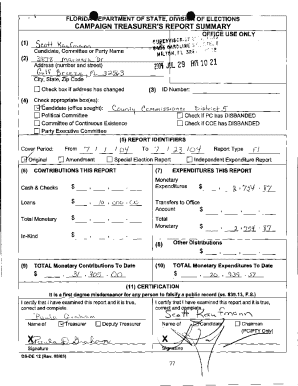 FLORIDA DEPARTMENT OF STATE, DIVISION OF ELECTIONS
CAMPAIGN TREASURER'S REPORT SUMMARY
OFFICE USE ONLY
(1) Scott Kaufmann
Candidate, Committee or Party Name
(2) 2878
Address (number and street)
Gulf Breeze, FL 32563
City, State, Zip Code
MILTON, FL
2004 JUL 29 AM 10 21
Check box if address has changed (3) ID Number:
(4) Check appropriate box(es):
Candidate (office sought): County Commissioner District 5
Political Committee Check if PC has DISBANDED
Committee of Continuous Existence Check if CCE has DISBANDED
Party Executive Committee
(5) REPORT IDENTIFIERS
Cover Period: From 7 / 1 / 04 To 7 / 23 / 04 Report Type F1
Original Amendment Special Election Report Independent Expenditure Report
(6) CONTRIBUTIONS THIS REPORT
Cash & Checks $
Loans $ 10,000.00
Total Monetary $
In-Kind $
(7) EXPENDITURES THIS REPORT
Monetary
Expenditures $ 2,754.87
Transfers to Office
Account $
Total
Monetary $ 2,754.87
(8) Other Distributions
$
(9) TOTAL Monetary Contributions To Date
$
(10) TOTAL Monetary Expenditures To Date
$
(11) CERTIFICATION
It is a first degree misdemeanor for any person to falsify a public record (ss. 839.13, F.S.)
I certify that I have examined this report and it is true,
correct and complete.
Paula Graham
Name of Treasurer Deputy Treasurer
X Paula D Graham
Signature
I certify that I have examined this report and it is true,
correct and complete.
Scott Kaufmann
Name of Candidate Chairman
(PC/PTY Only)
X
Signature
DS-DE 12
77